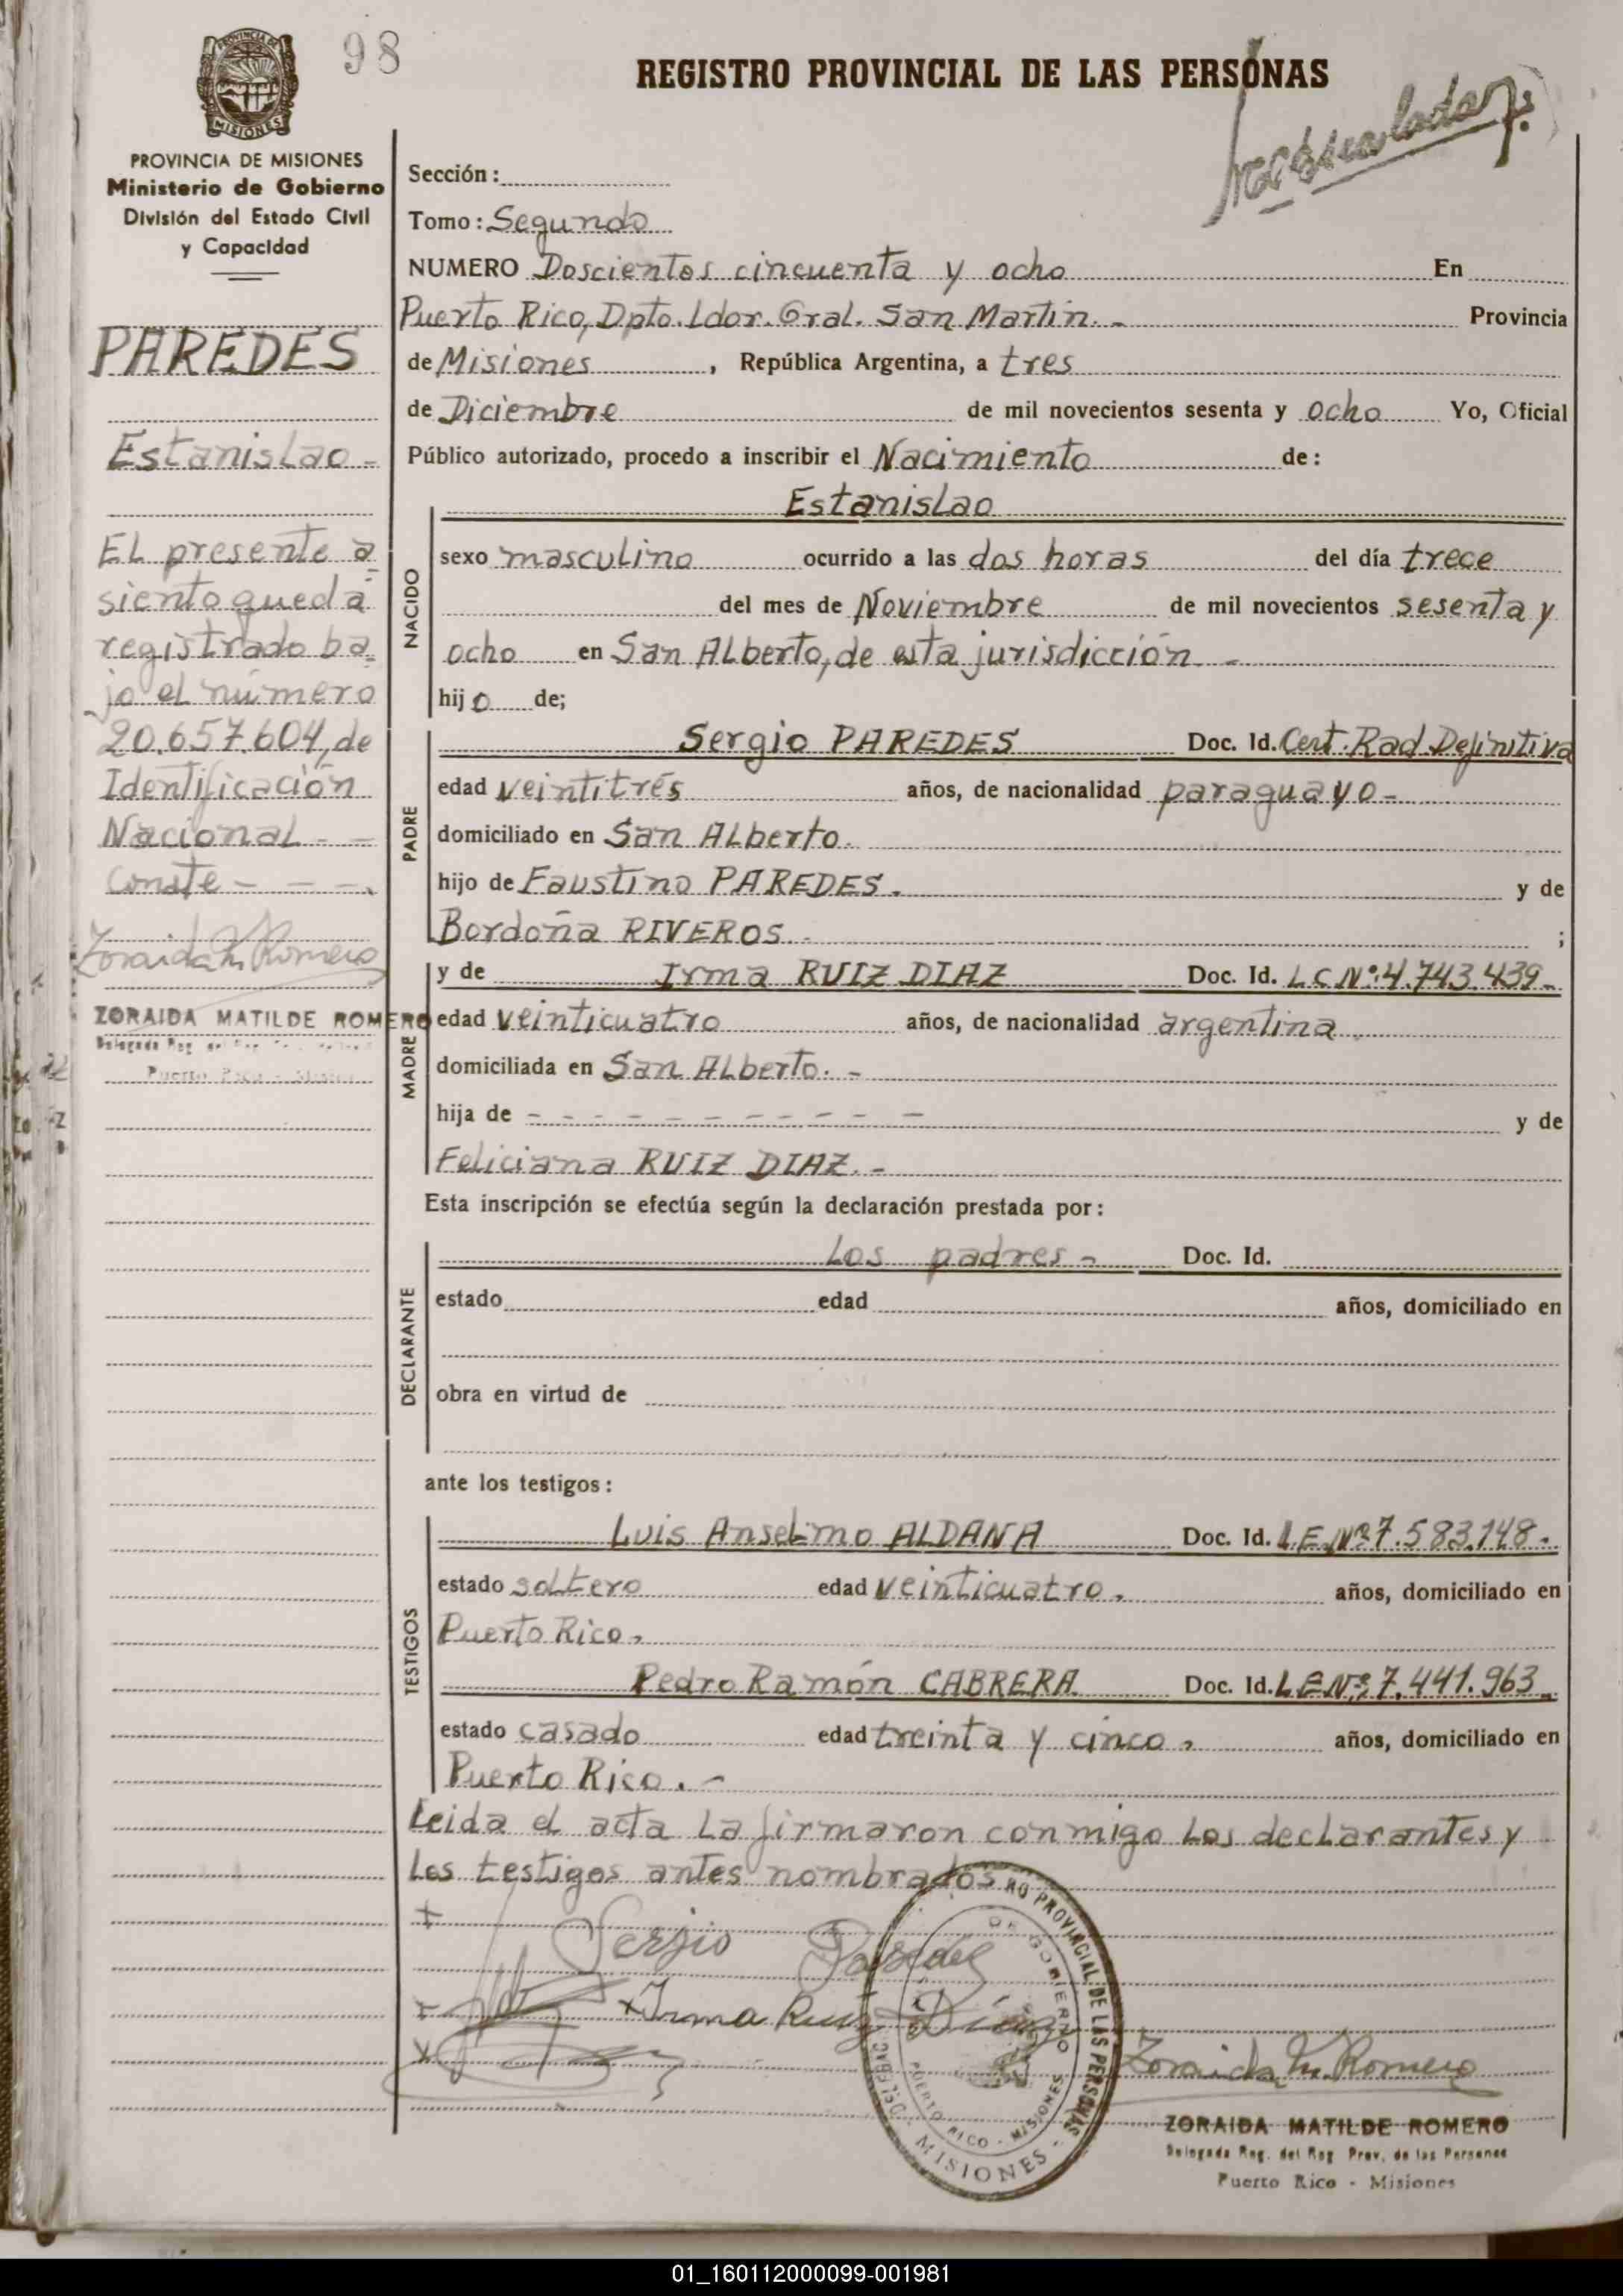 98
REGISTRO PROVINCIAL DE LAS PERSONAS
PROVINCIA DE MISIONES
Ministerio de Gobierno
División del Estado Civil
y Capacidad
PAREDES
Estanislao -
EL presente a
siento queda
registrado ba
jo el número
20.657.604, de
Identificación
Nacional - -
Conste - - -
Zoraida M. Romero
ZORAIDA MATILDE ROMERO
Puerto Rico - Misiones
Sección:
Tomo: Segundo
NUMERO Doscientos cincuenta y ocho En
Puerto Rico, Dpto. Ldor. Gral. San Martín. - Provincia
de Misiones , República Argentina, a tres
de Diciembre de mil novecientos sesenta y ocho Yo, Oficial
Público autorizado, procedo a inscribir el Nacimiento de:
Estanislao
NACIDO
sexo masculino ocurrido a las dos horas del día trece
del mes de Noviembre de mil novecientos sesenta y
ocho en San Alberto, de esta jurisdicción -
hijo de;
PADRE
Sergio PAREDES Doc. Id. Cert. Rad Definitiva
edad veintitrés años, de nacionalidad paraguayo -
domiciliado en San Alberto.
hijo de Faustino PAREDES. y de
Bordoña RIVEROS. ;
MADRE
y de Irma RUIZ DIAZ Doc. Id. LC Nº:4.743.439-
edad veinticuatro años, de nacionalidad argentina
domiciliada en San Alberto. -
hija de - - - - - - - - - - - y de
Feliciana RUIZ DIAZ. -
Esta inscripción se efectúa según la declaración prestada por:
DECLARANTE
Los padres - Doc. Id.
estado edad años, domiciliado en
obra en virtud de
ante los testigos:
TESTIGOS
Luis Anselmo ALDANA Doc. Id. L.E.Nº7.583.148.
estado soltero edad veinticuatro. años, domiciliado en
Puerto Rico.
Pedro Ramón CABRERA Doc. Id. L.E Nº:7.441.963
estado casado edad treinta y cinco, años, domiciliado en
Puerto Rico. -
Leida el acta la firmaron conmigo los declarantes y
los testigos antes nombrados
Sergio Paredes
Irma Ruiz Diaz
REGISTRO PROVINCIAL DE LAS PERSONAS
DE GOBIERNO
PUERTO RICO - MISIONES
MISIONES -
Zoraida M. Romero
ZORAIDA MATILDE ROMERO
Delegada Reg. del Reg Prov. de las Personas
Puerto Rico - Misiones
01_160112000099-001981